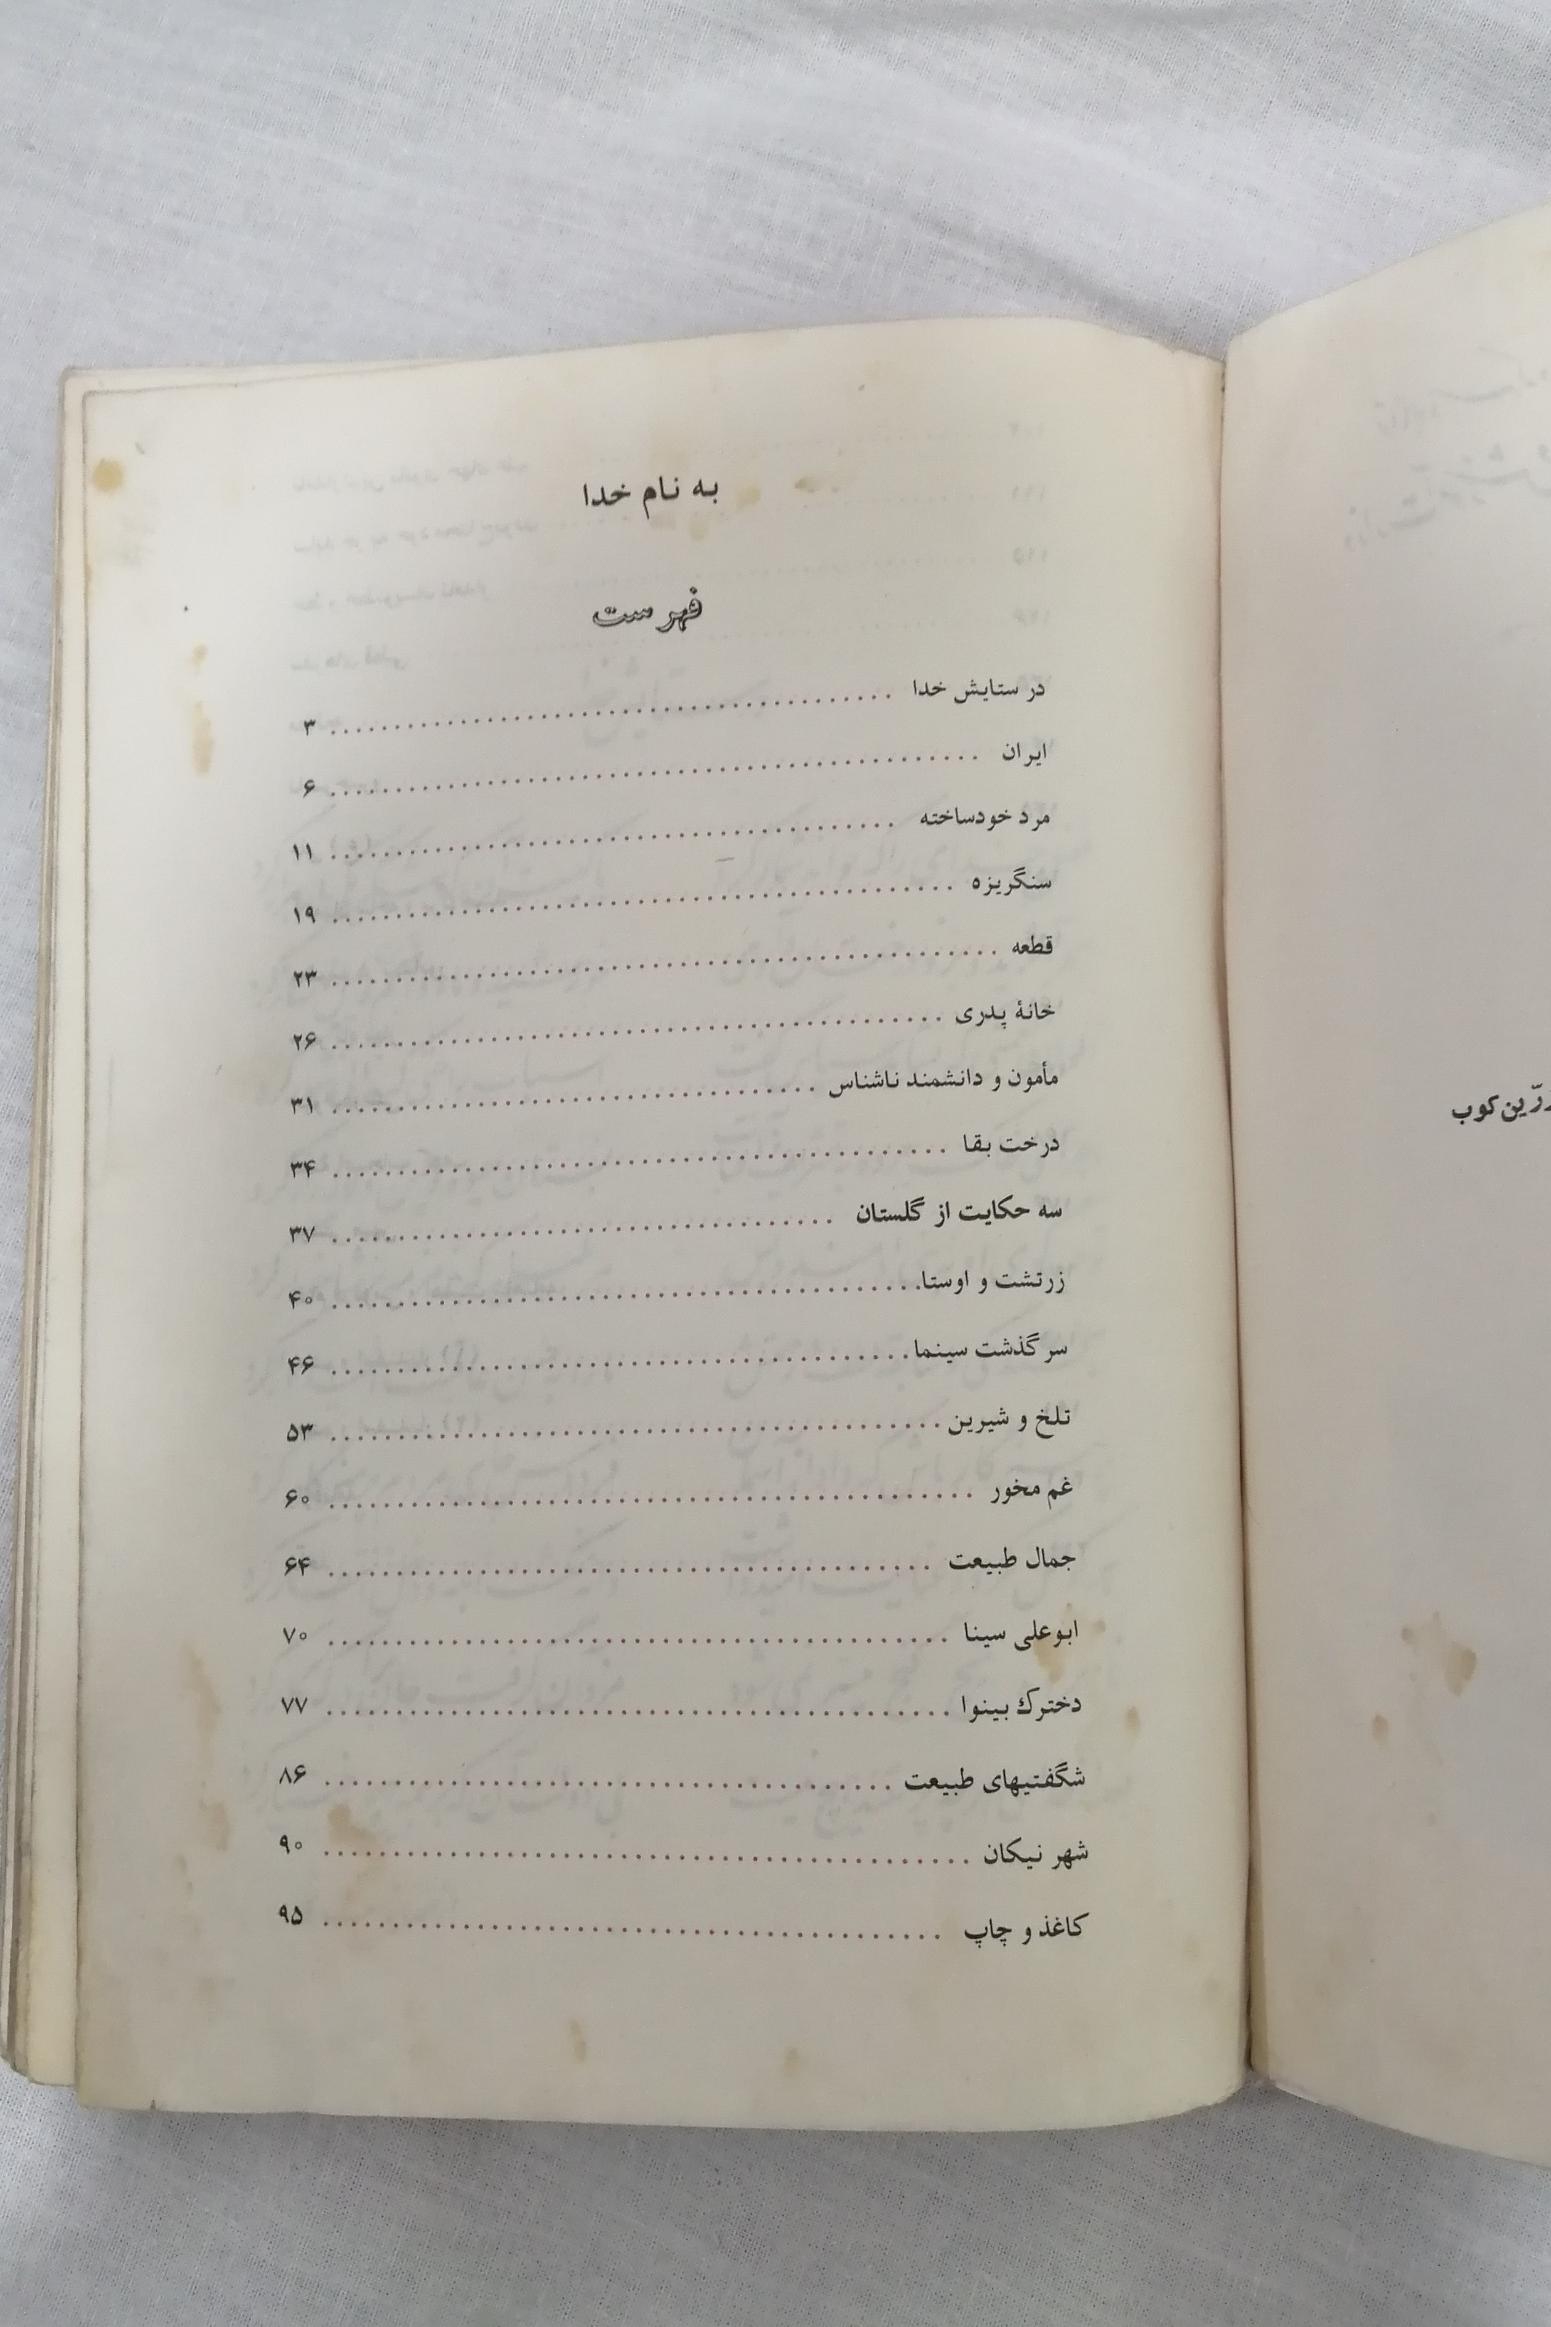 زرّین‌کوب
به نام خدا
فهرست
در ستایش خدا ........ ۳
ایران ........ ۶
مرد خودساخته ........ ۱۱
سنگریزه ........ ۱۹
قطعه ........ ۲۳
خانهٔ پدری ........ ۲۶
مأمون و دانشمند ناشناس ........ ۳۱
درخت بقا ........ ۳۴
سه حکایت از گلستان ........ ۳۷
زرتشت و اوستا ........ ۴۰
سرگذشت سینما ........ ۴۶
تلخ و شیرین ........ ۵۳
غم مخور ........ ۶۰
جمال طبیعت ........ ۶۴
ابوعلی سینا ........ ۷۰
دخترك بینوا ........ ۷۷
شگفتیهای طبیعت ........ ۸۶
شهر نیکان ........ ۹۰
کاغذ و چاپ ........ ۹۵